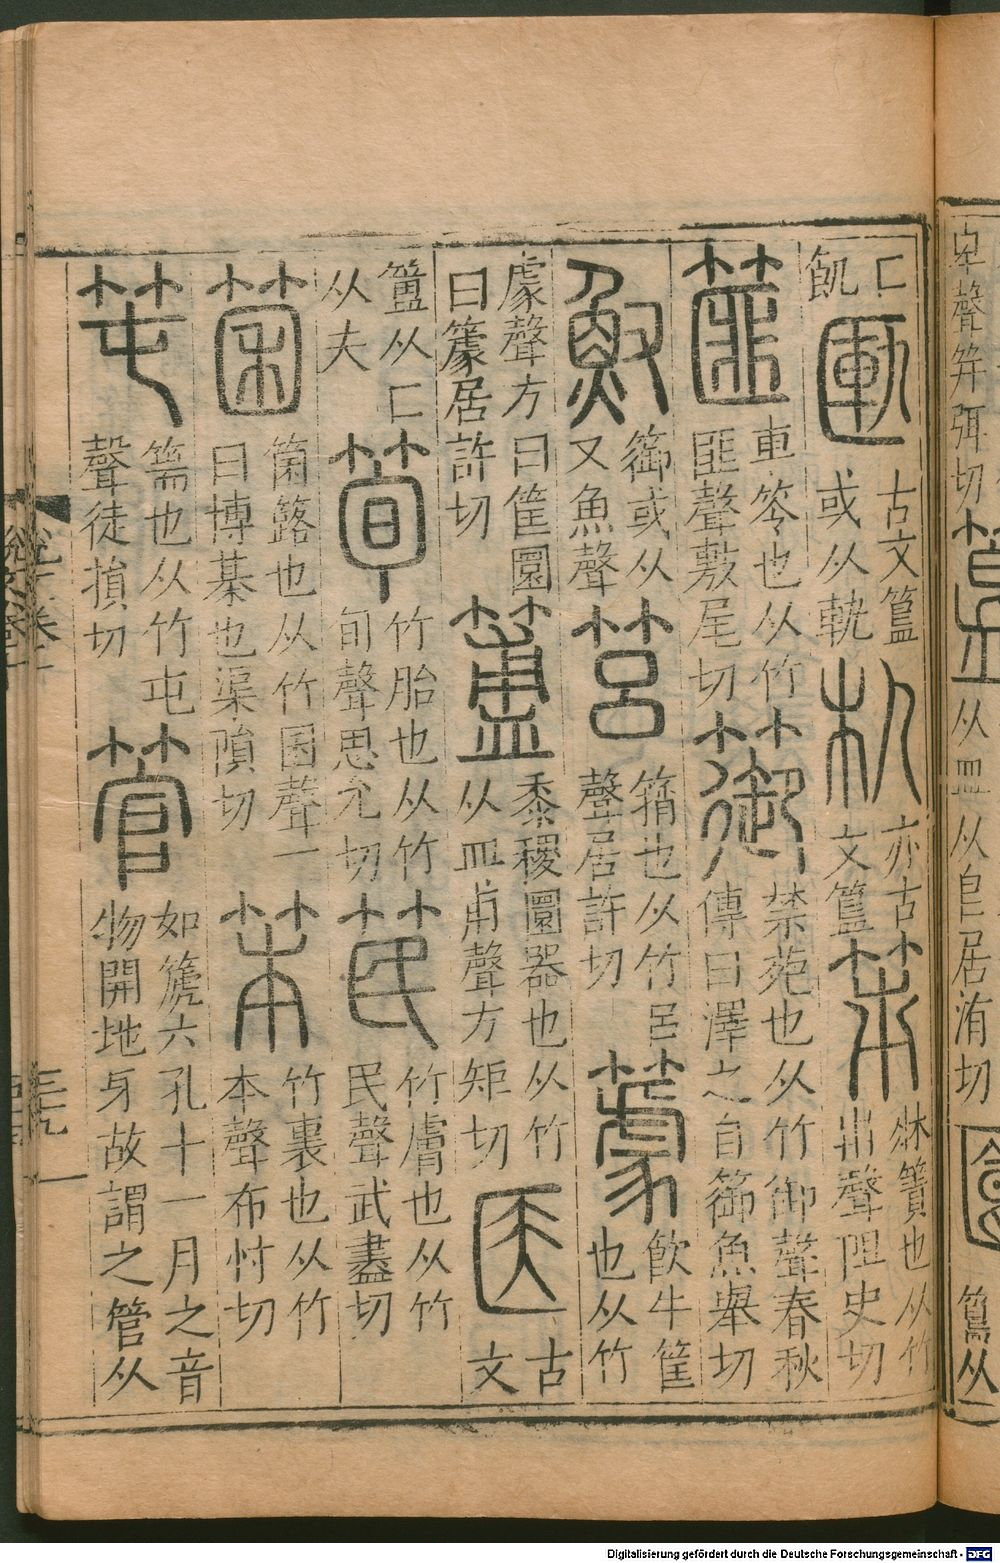 卑聲筓弭切
从皿从皀居洧切
簋从
匚
飢
𠥗
古文簋
或从軌
朹
亦古
文簋
笫
牀簀也从竹
𠂔聲阻史切
篚
車笭也从竹
匪聲敷尾切
籞
禁苑也从竹御聲春秋
傳曰澤之自篽魚舉切
𩵎
篽或从
又魚聲
筥
䈰也从竹呂
聲居許切
篆
飲牛筐
也从竹
豦聲方曰筐圜
曰籧居許切
簠
黍稷圜器也从竹
从皿甫聲方矩切
医
古
文
簠从匚
从夫
筍
竹胎也从竹
旬聲思允切
笢
竹膚也从竹
民聲武盡切
箘
箘簬也从竹囷聲一
曰博棊也渠隕切
笨
竹裏也从竹
本聲布忖切
笹
篅也从竹屯
聲徒損切
管
如篪六孔十一月之音
物開地牙故謂之管从
Digitalisierung gefördert durch die Deutsche Forschungsgemeinschaft - DFG